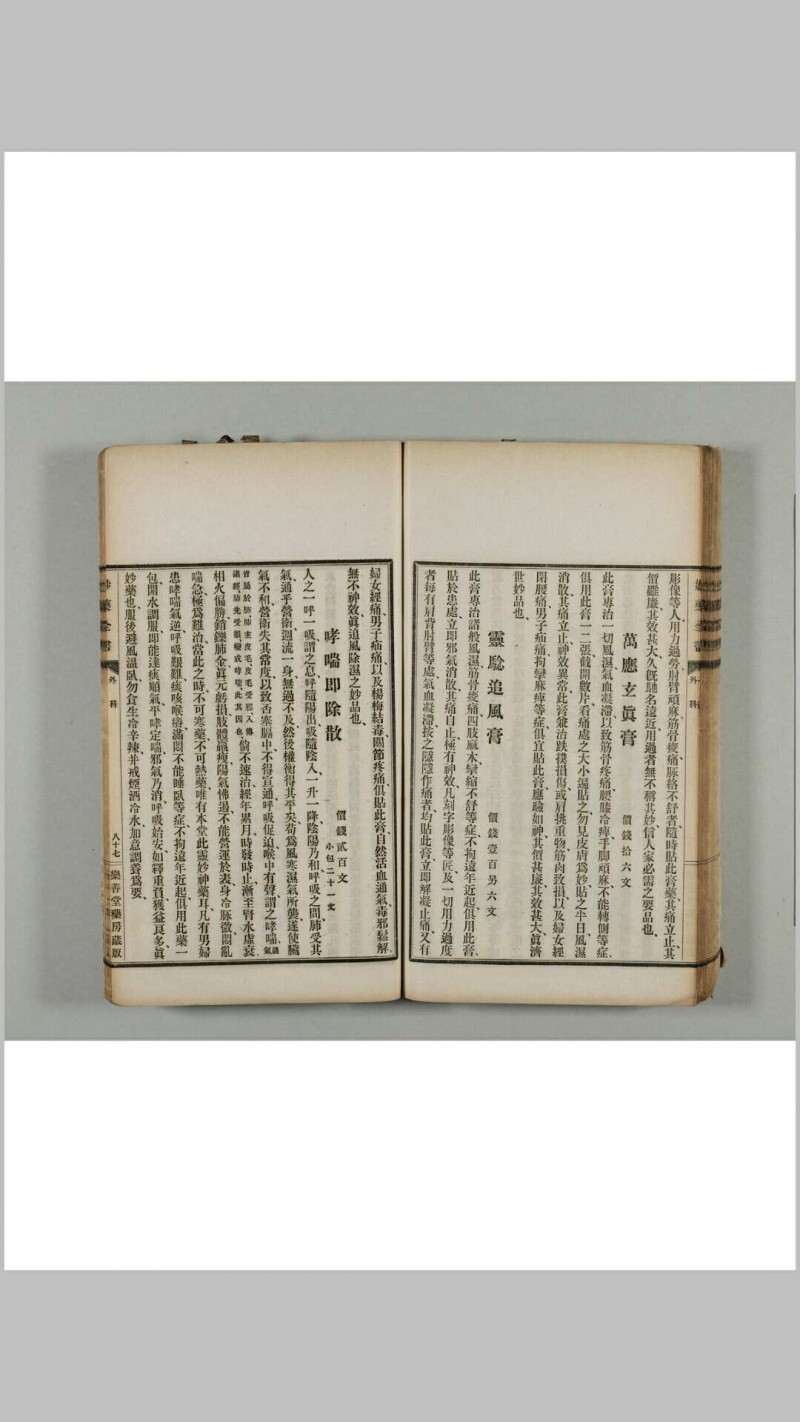 彫像等人用力過勞肘臂頑麻筋骨痠痛脈絡不舒者隨時貼此膏藥其痛立止其
價雖廉其效甚大久旣馳名遠近用過者無不稱其妙信人家必需之要品也
萬應玄眞膏　價錢拾六文
此膏專治一切風濕氣血凝滯以致筋骨疼痛腰膝冷痺手脚頑麻不能轉側等症
俱用此膏一二張截開數片看痛處之大小遍貼之勿見皮膚爲妙貼之半日風濕
消散其痛立止神效異常此膏兼治跌撲損傷或肩挑重物筋肉致損以及婦女經
閉腰痛男子疝痛拘攣麻痺等症俱宜貼此膏應驗如神其價甚廉其效甚大眞濟
世妙品也
靈驗追風膏　價錢壹百另六文
此膏專治諸般風濕筋骨痠痛四肢麻木攣縮不舒等症不拘遠年近起俱用此膏
貼於患處立即邪氣消散其痛自止極有神效凡刻字彫像等匠及一切用力過度
者每有肩背肘臂等處氣血凝滯按之隱隱作痛者均貼此膏立即解凝止痛又有
婦女經痛男子疝痛以及楊梅結毒關節疼痛俱貼此膏自然活血通氣毒邪鬆解
無不神效眞追風除濕之妙品也
哮喘即除散　價錢貳百文　小包二十一文
人之一呼一吸謂之息呼隨陽出吸隨陰入一升一降陰陽乃和呼吸之間肺受其
氣通乎營衛週流一身無過不及然後權衡得其平矣苟爲風寒濕氣所襲遂使臟
氣不和營衛失其常度以致舌塞膈中不得宣通呼吸促迫喉中有聲謂之哮喘
皆屬於肺肺主皮毛皮毛受邪入傳
肺先受邪變成哮喘此其因也倘不速治經年累月時發時止漸至腎水虛衰
相火偏勝銷鑠肺金眞元虧損肢體羸瘦陽氣怫遏不能營運於表身冷脈微悶亂
喘急極爲難治當此之時不可寒藥不可熱藥唯有本堂此靈妙神藥耳凡有男婦
患哮喘氣逆呼吸艱難痰咳喉瘡滿悶不能睡臥等症不拘遠年近起俱用此藥一
包開水調服即能達痰順氣平哮定喘邪氣乃消呼吸始安如釋重負獲益良多眞
妙藥也服後避風溫臥勿食生冷辛辣并戒煙酒冷水加意調養爲要
外科
八十七
樂善堂藥房藏版
外科